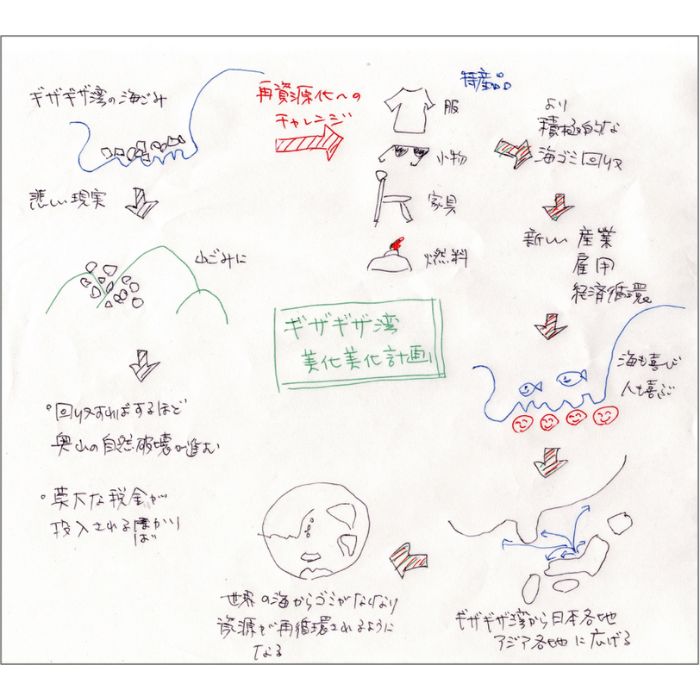 ギザギザ湾の海ごみ
再資源化への
チャレンジ
特産品
服
小物
家具
燃料
より
積極的な
海ゴミ回収
悲しい現実
山ごみに
新しい産業
雇用
経済循環
ギザギザ湾
美化美化計画
海も喜び
人も喜ぶ
・回収すればするほど
奥山の自然破壊が進む
・莫大な税金が
投入されるばかり
ば
世界の海からゴミがなくなり
資源で再循環されるように
なる
ギザギザ湾から日本各地
アジア各地に広げる